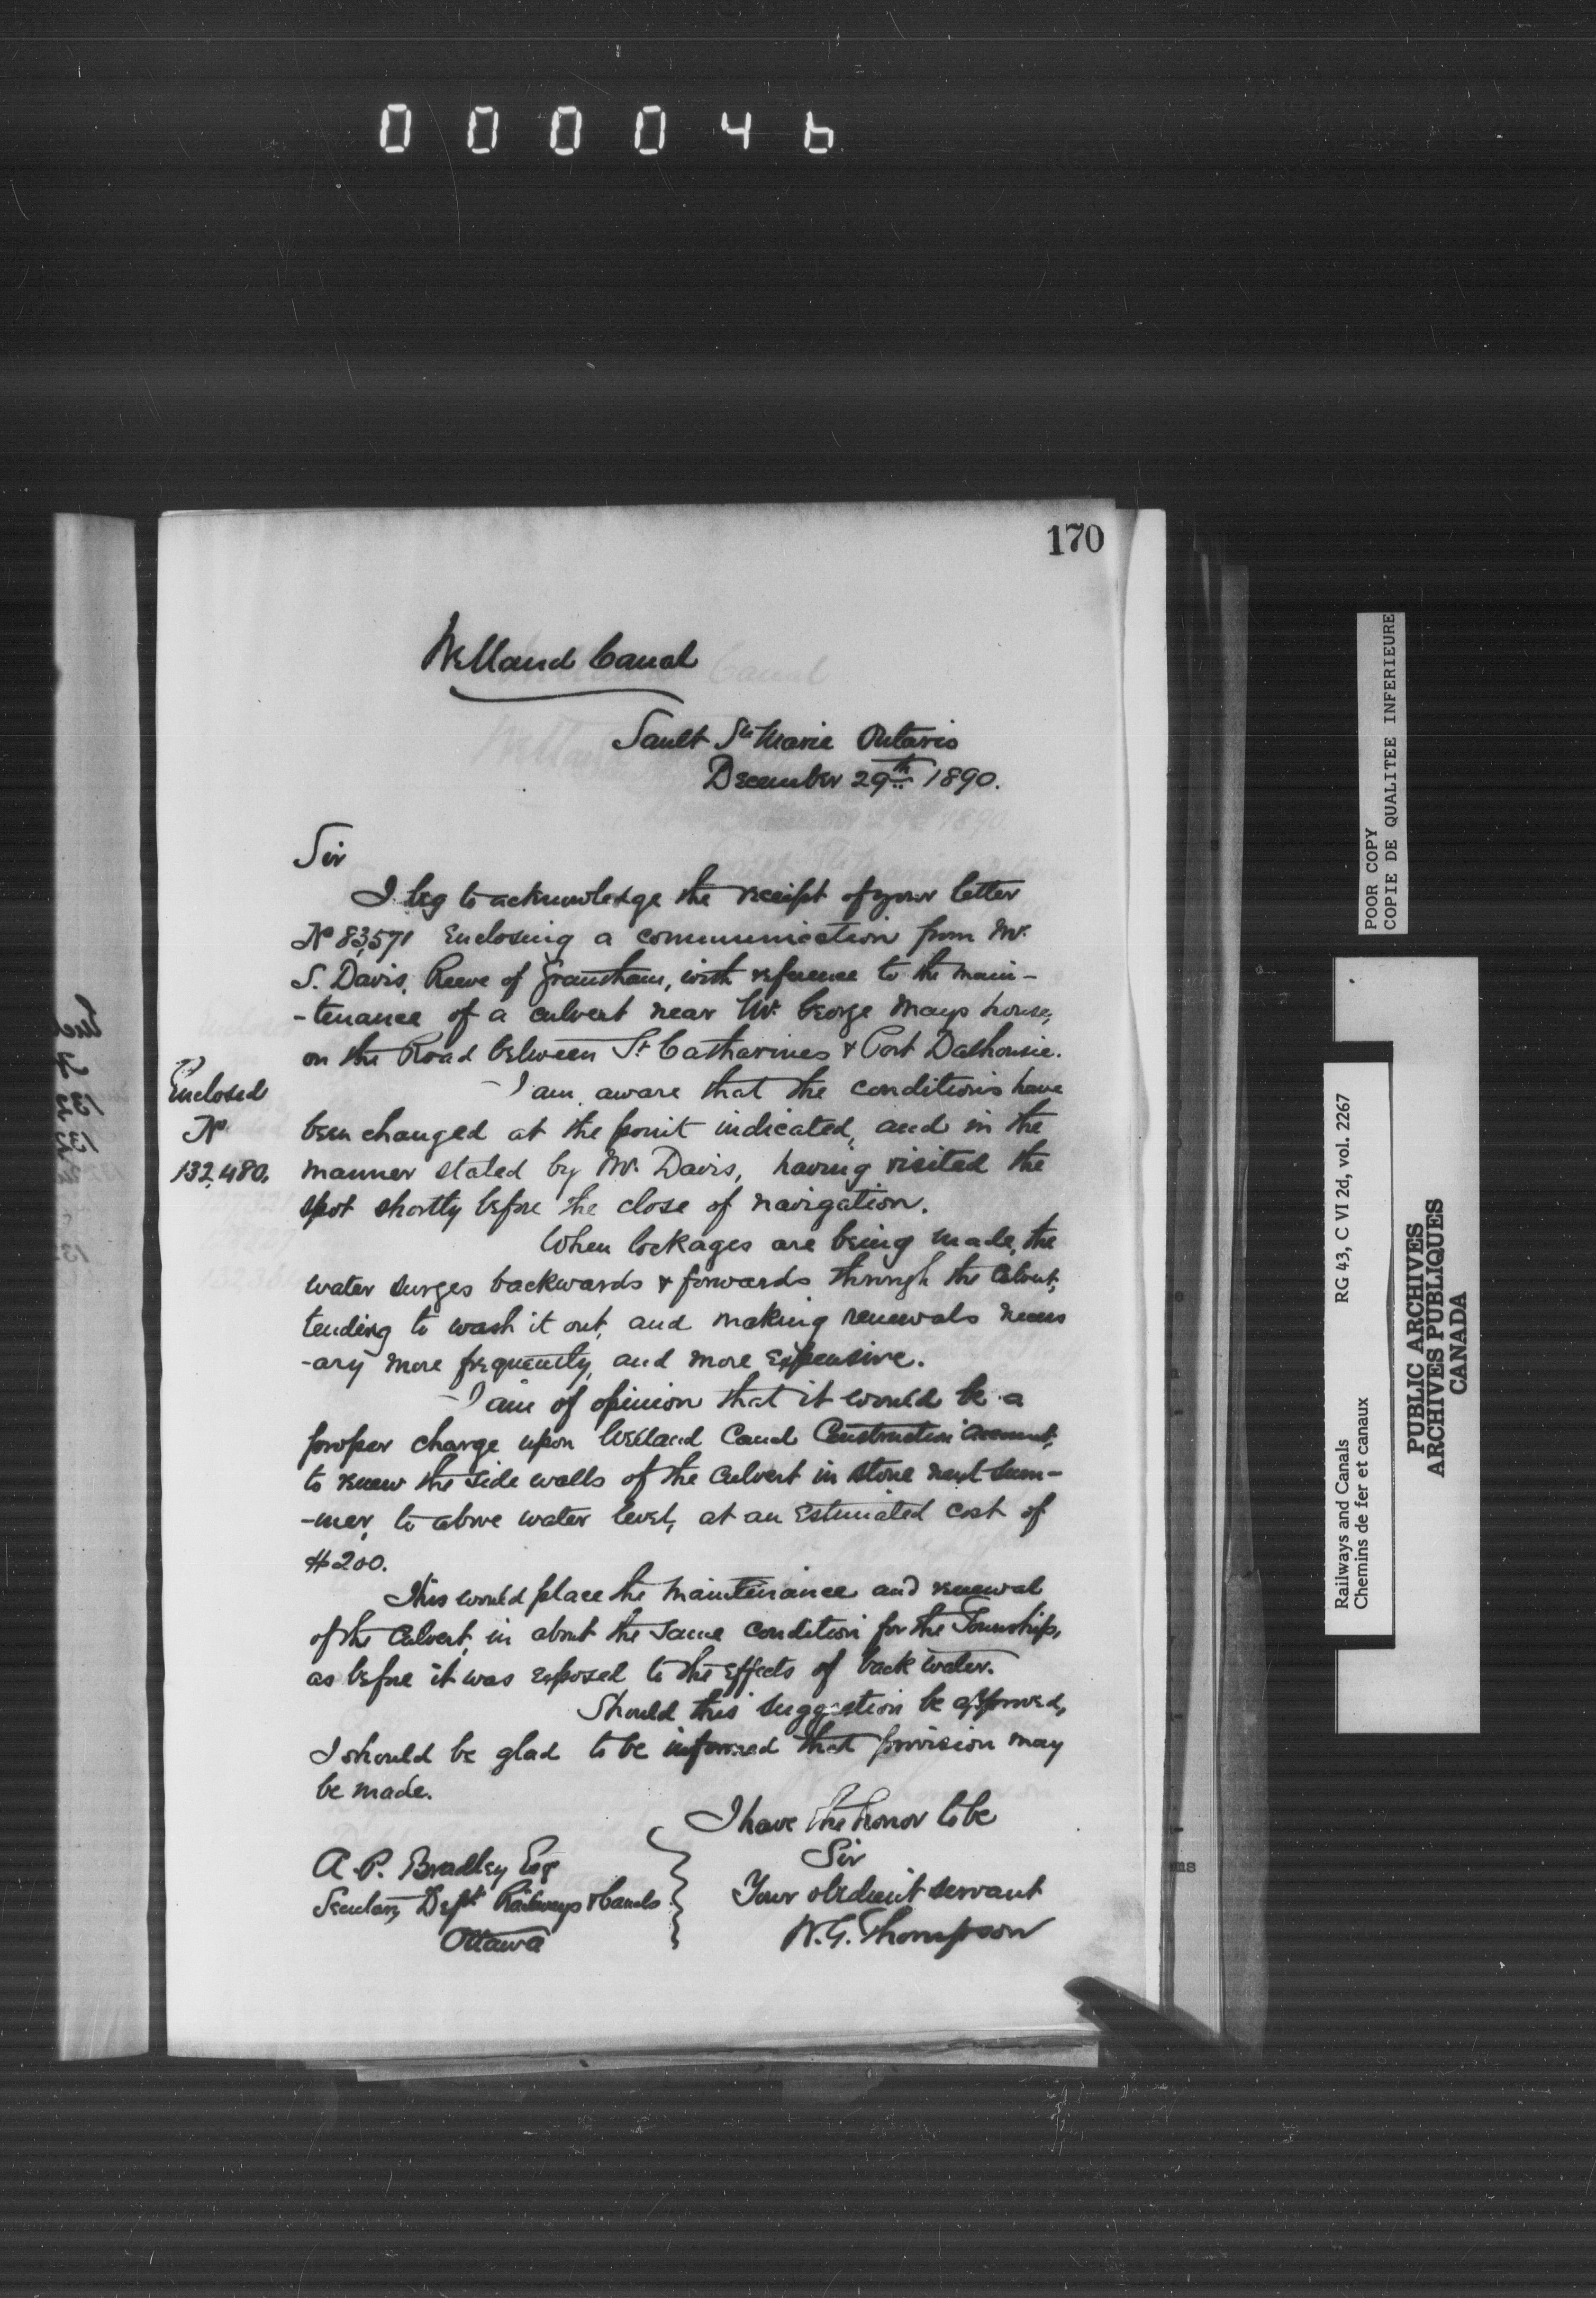 000046
170
Welland Canal
Sault Ste Marie Ontario
December 29th 1890.
Sir
I beg to acknowledge the receipt of your letter
No 83,571 Enclosing a communication from Mr.
S. Davis, Reeve of Grantham, with reference to the main-
-tenance of a culvert near Mr. George Mays house,
on the Road between St Catharines & Port Dalhousie.
I am aware that the conditions have
been changed at the point indicated, and in the
manner stated by Mr. Davis, having visited the
spot shortly before the close of navigation.
Enclosed
No
132,480.
When lockages are being made, the
water surges backwards & forwards through the Culvert,
tending to wash it out, and making renewals necess
-ary more frequently, and more Expensive.
I am of opinion that it would be a
proper charge upon Welland Canal Construction account,
to renew the side walls of the Culvert in stone next sum-
-mer, to above water level, at an Estimated cost of
$200.
This would place the maintenance and renewal
of the Culvert, in about the same condition for the Township,
as before it was exposed to the Effects of back water.
Should this suggestion be approved,
I should be glad to be informed that provision may
be made.
I have the honor to be
Sir
Your obedient servant
W.G. Thompson
A. P. Bradley Esqr
Secretary Dept Railways & Canals
Ottawa
POOR COPY
COPIE DE QUALITEE INFERIEURE
Railways and Canals RG 43, C VI 2d, vol. 2267
Chemins de fer et canaux
PUBLIC ARCHIVES
ARCHIVES PUBLIQUES
CANADA